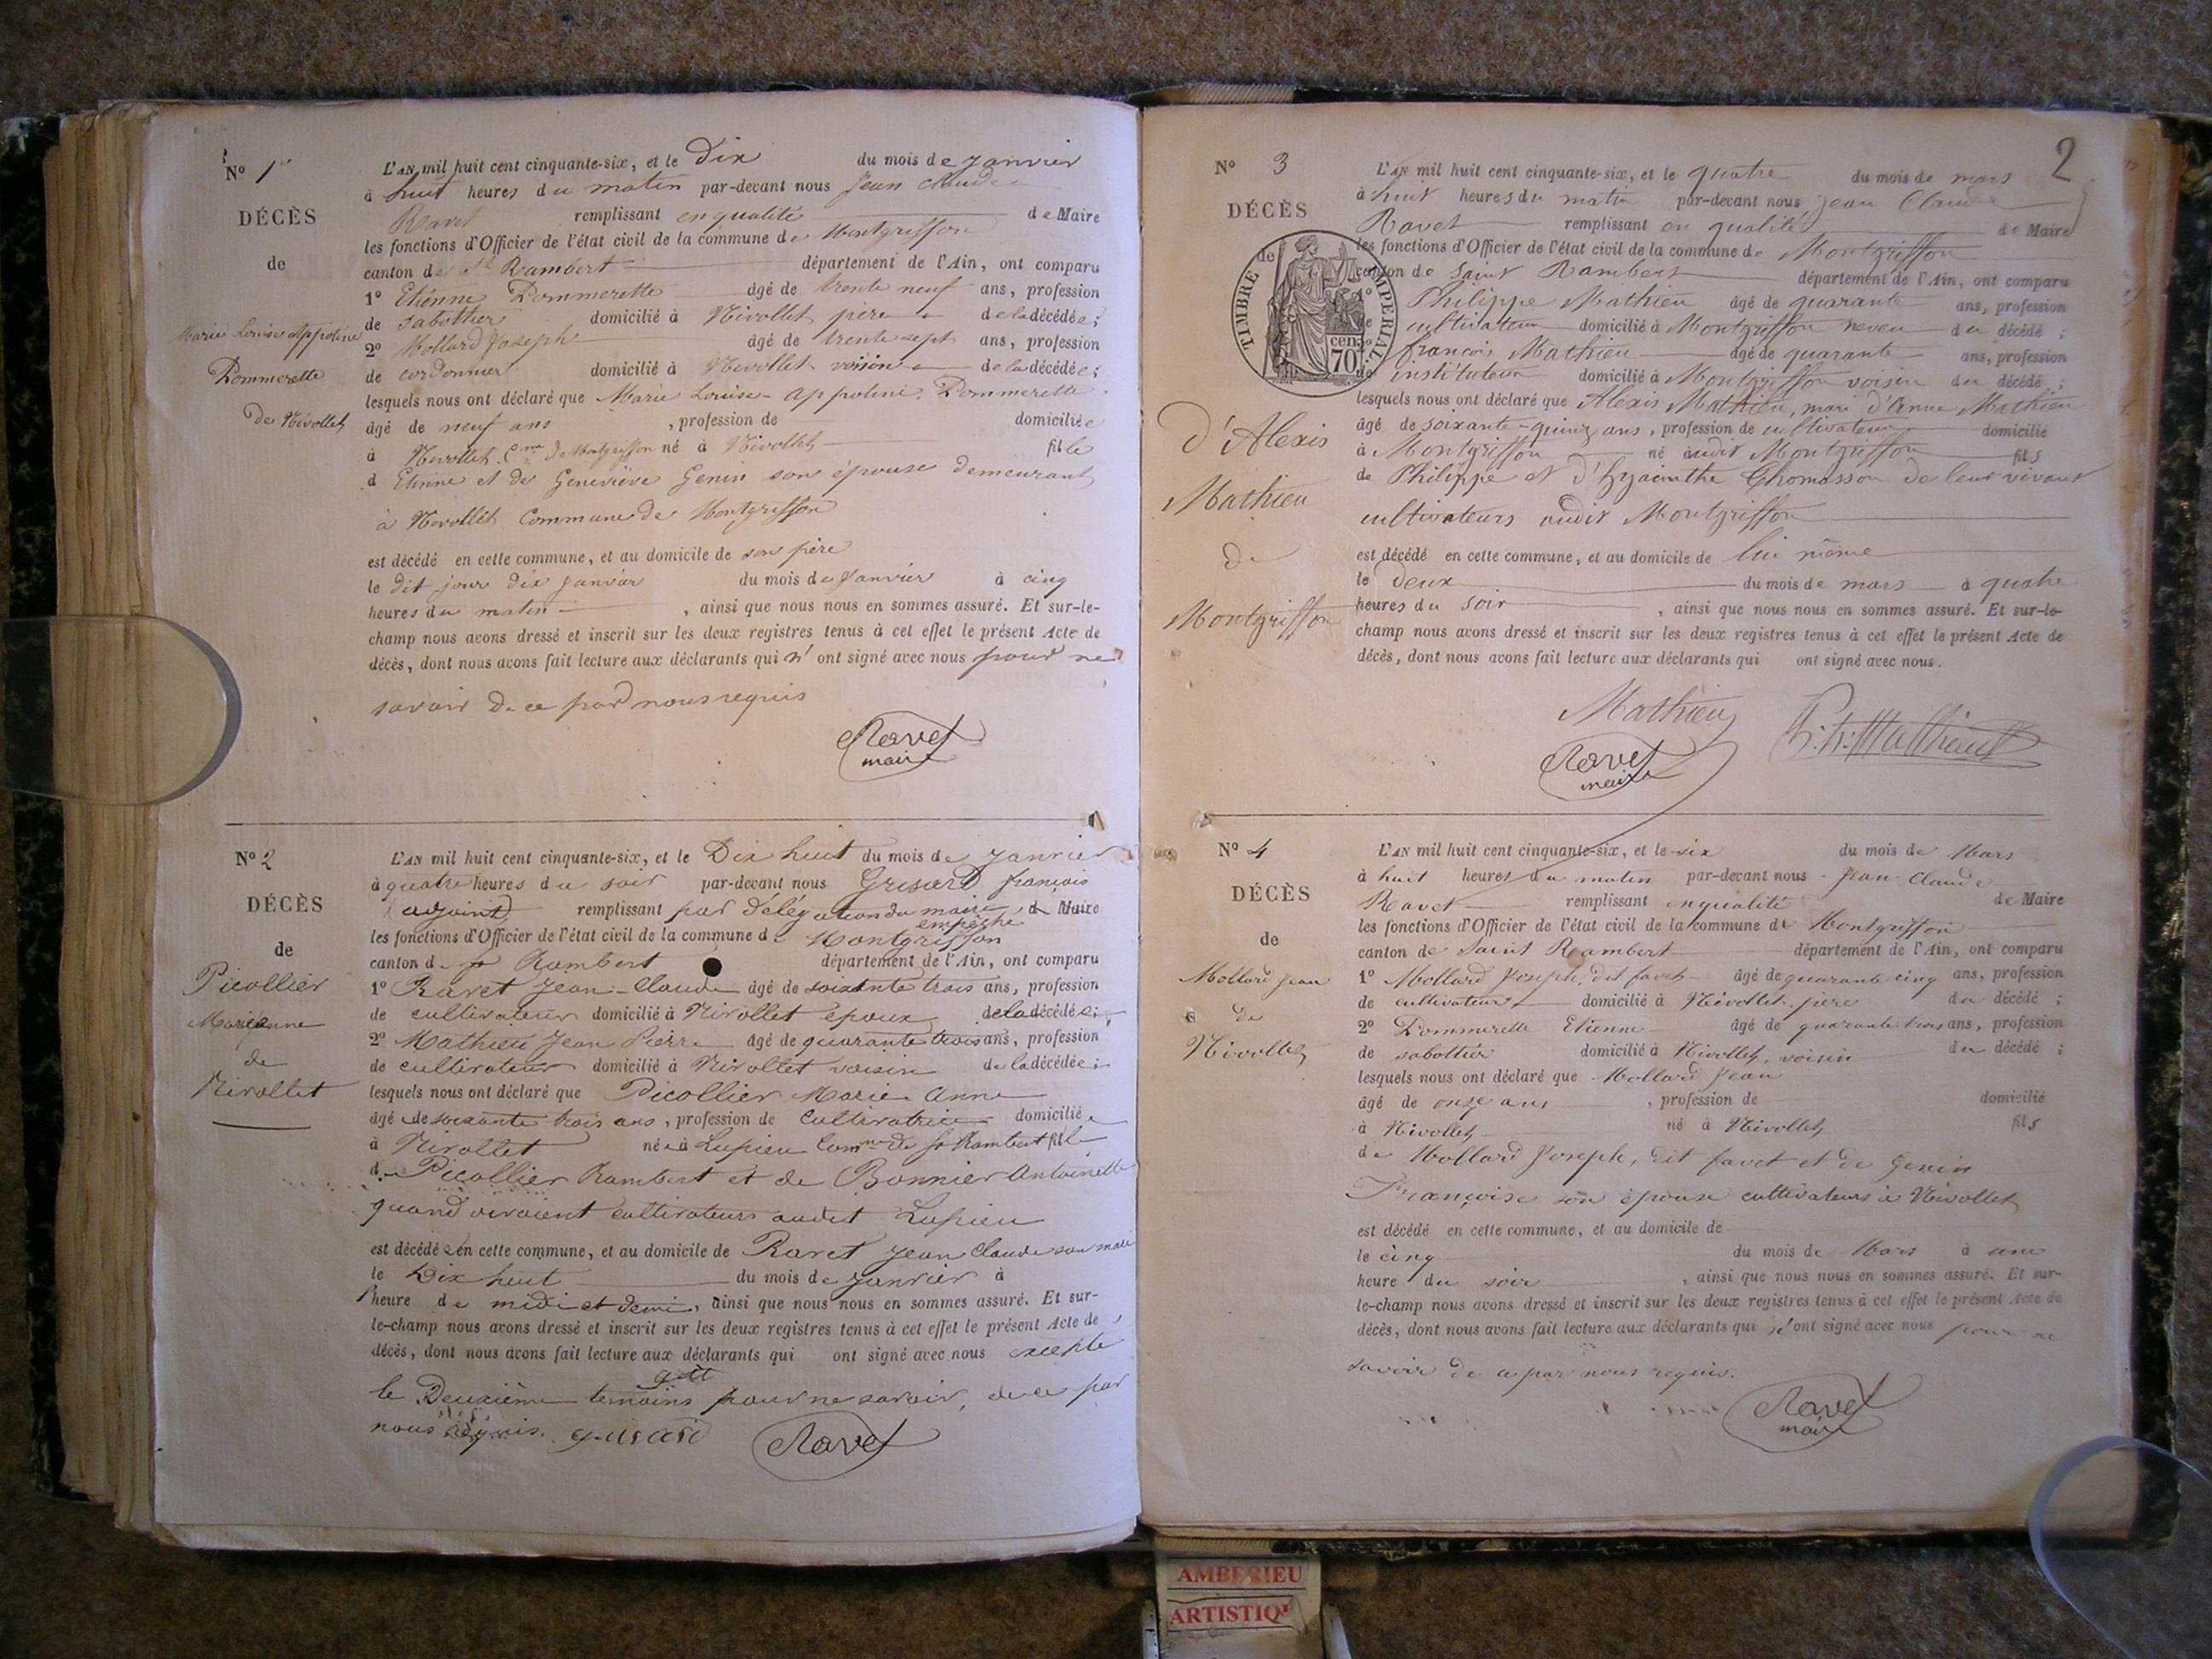 No 1er
DÉCÈS
de
Marie Louise Appoline
Pommerette
de Nivollet
L'AN mil huit cent cinquante-six, et le Dix du mois de Janvier
à huit heures du matin par-devant nous Jean Claude
Ravet remplissant en qualité de Maire
les fonctions d'Officier de l'état civil de la commune de Montgriffon
canton de St Rambert département de l'Ain, ont comparu
1º Etienne Pommerette âgé de trente neuf ans, profession
de sabottier domicilié à Nivollet père de la décédée;
2º Mollard Joseph âgé de trente sept ans, profession
de cordonnier domicilié à Nivollet voisin de la décédée;
lesquels nous ont déclaré que Marie Louise-Appoline Pommerette
âgé de neuf ans , profession de domiciliée
à Nivollet Cne de Montgriffon né à Nivollet fille
d Etienne et de Geneviève Genin son épouse demeurant
à Nivollet Commune de Montgriffon
est décédé en cette commune, et au domicile de son père
le dit jour dix janvier du mois de Janvier à cinq
heures du matin , ainsi que nous nous en sommes assuré. Et sur-le-
champ nous avons dressé et inscrit sur les deux registres tenus à cet effet le présent Acte de
décès, dont nous avons fait lecture aux déclarants qui n'ont signé avec nous pour ne
savoir de ce par nous requis
Ravet
maire
No 2
DÉCÈS
de
Picollier
Marie anne
de
Nivollet
L'AN mil huit cent cinquante-six, et le Dix huit du mois de Janvier
à quatre heures du soir par-devant nous Grisard françois
adjoint remplissant par délégation du maire de Maire
empêché
les fonctions d'Officier de l'état civil de la commune d Montgriffon
canton de Rambert département de l'Ain, ont comparu
1º Ravet Jean-Claude âgé de soixante trois ans, profession
de cultivateur domicilié à Nivollet époux de la décédée;
2º Mathieu Jean Pierre âgé de quarante trois ans, profession
de cultivateur domicilié à Nivollet voisin de la décédée;
lesquels nous ont déclaré que Picollier Marie Anne
âgé de soixante trois ans, profession de Cultivatrice domiciliée
à Nivollet née à Lupieu Comne de St Rambert fille
de Picollier Rambert et de Bonnier Antoinette
quand vivaient cultivateurs audit Lupieu
est décédée en cette commune, et au domicile de Ravet Jean Claude son mari
le Dix huit du mois de Janvier à
l'heure de midi et demi, ainsi que nous nous en sommes assuré. Et sur-
le-champ nous avons dressé et inscrit sur les deux registres tenus à cet effet le présent Acte de
décès, dont nous avons fait lecture aux déclarants qui ont signé avec nous excepté
le Deuxième temoins pour ne savoir, de ce par
nous requis. grisard Ravet
2
No 3
DÉCÈS
de
TIMBRE IMPERIAL
70 cen.
d'Alexis
Mathieu
De
Montgriffon
L'AN mil huit cent cinquante-six, et le quatre du mois de mars
à huit heures du matin par-devant nous Jean Claude
Ravet remplissant en qualité de Maire
les fonctions d'Officier de l'état civil de la commune de Montgriffon
canton de Saint Rambert département de l'Ain, ont comparu
Philippe Mathieu âgé de quarante ans, profession
cultivateur domicilié à Montgriffon neveu du décédé;
françois Mathieu âgé de quarante ans, profession
instituteur domicilié à Montgriffon voisin du décédé;
lesquels nous ont déclaré que Alexis Mathieu, mari d'Anne Mathieu
âgé de soixante-quinz ans, profession de cultivateur domicilié
à Montgriffon né audit Montgriffon fils
de Philippe et d'hyacinthe Thomasson de leur vivant
cultivateurs audit Montgriffon
est décédé en cette commune, et au domicile de lui même
le deux du mois de mars à quatre
heures du soir , ainsi que nous nous en sommes assuré. Et sur-le-
champ nous avons dressé et inscrit sur les deux registres tenus à cet effet le présent Acte de
décès, dont nous avons fait lecture aux déclarants qui ont signé avec nous.
Mathieu Ph. Mathieu
Ravet
maire
No 4
DÉCÈS
de
Mollard Jean
de
Nivollet
L'AN mil huit cent cinquante-six, et le six du mois de Mars
à huit heures du matin par-devant nous Jean Claude
Ravet remplissant en qualité de Maire
les fonctions d'Officier de l'état civil de la commune de Montgriffon
canton de Saint Rambert département de l'Ain, ont comparu
1º Mollard Joseph, dit favet âgé de quarante cinq ans, profession
de cultivateur domicilié à Nivollet père du décédé;
2º Pommerette Etienne âgé de quarante trois ans, profession
de sabottier domicilié à Nivollet, voisin du décédé;
lesquels nous ont déclaré que Mollard Jean
âgé de onze ans , profession de domicilié
à Nivollet né à Nivollet fils
de Mollard Joseph, dit favet et de Genin
Françoise son épouse cultivateurs à Nivollet
est décédé en cette commune, et au domicile de
le cinq du mois de Mars à une
heure du soir , ainsi que nous nous en sommes assuré. Et sur-
le-champ nous avons dressé et inscrit sur les deux registres tenus à cet effet le présent Acte de
décès, dont nous avons fait lecture aux déclarants qui n'ont signé avec nous pour ne
savoir de ce par nous requis.
Ravet
maire
AMBERIEU
ARTISTIQ